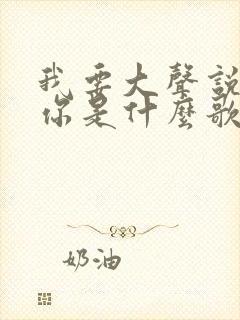 我要大聲說
你是什麼歌
奶油